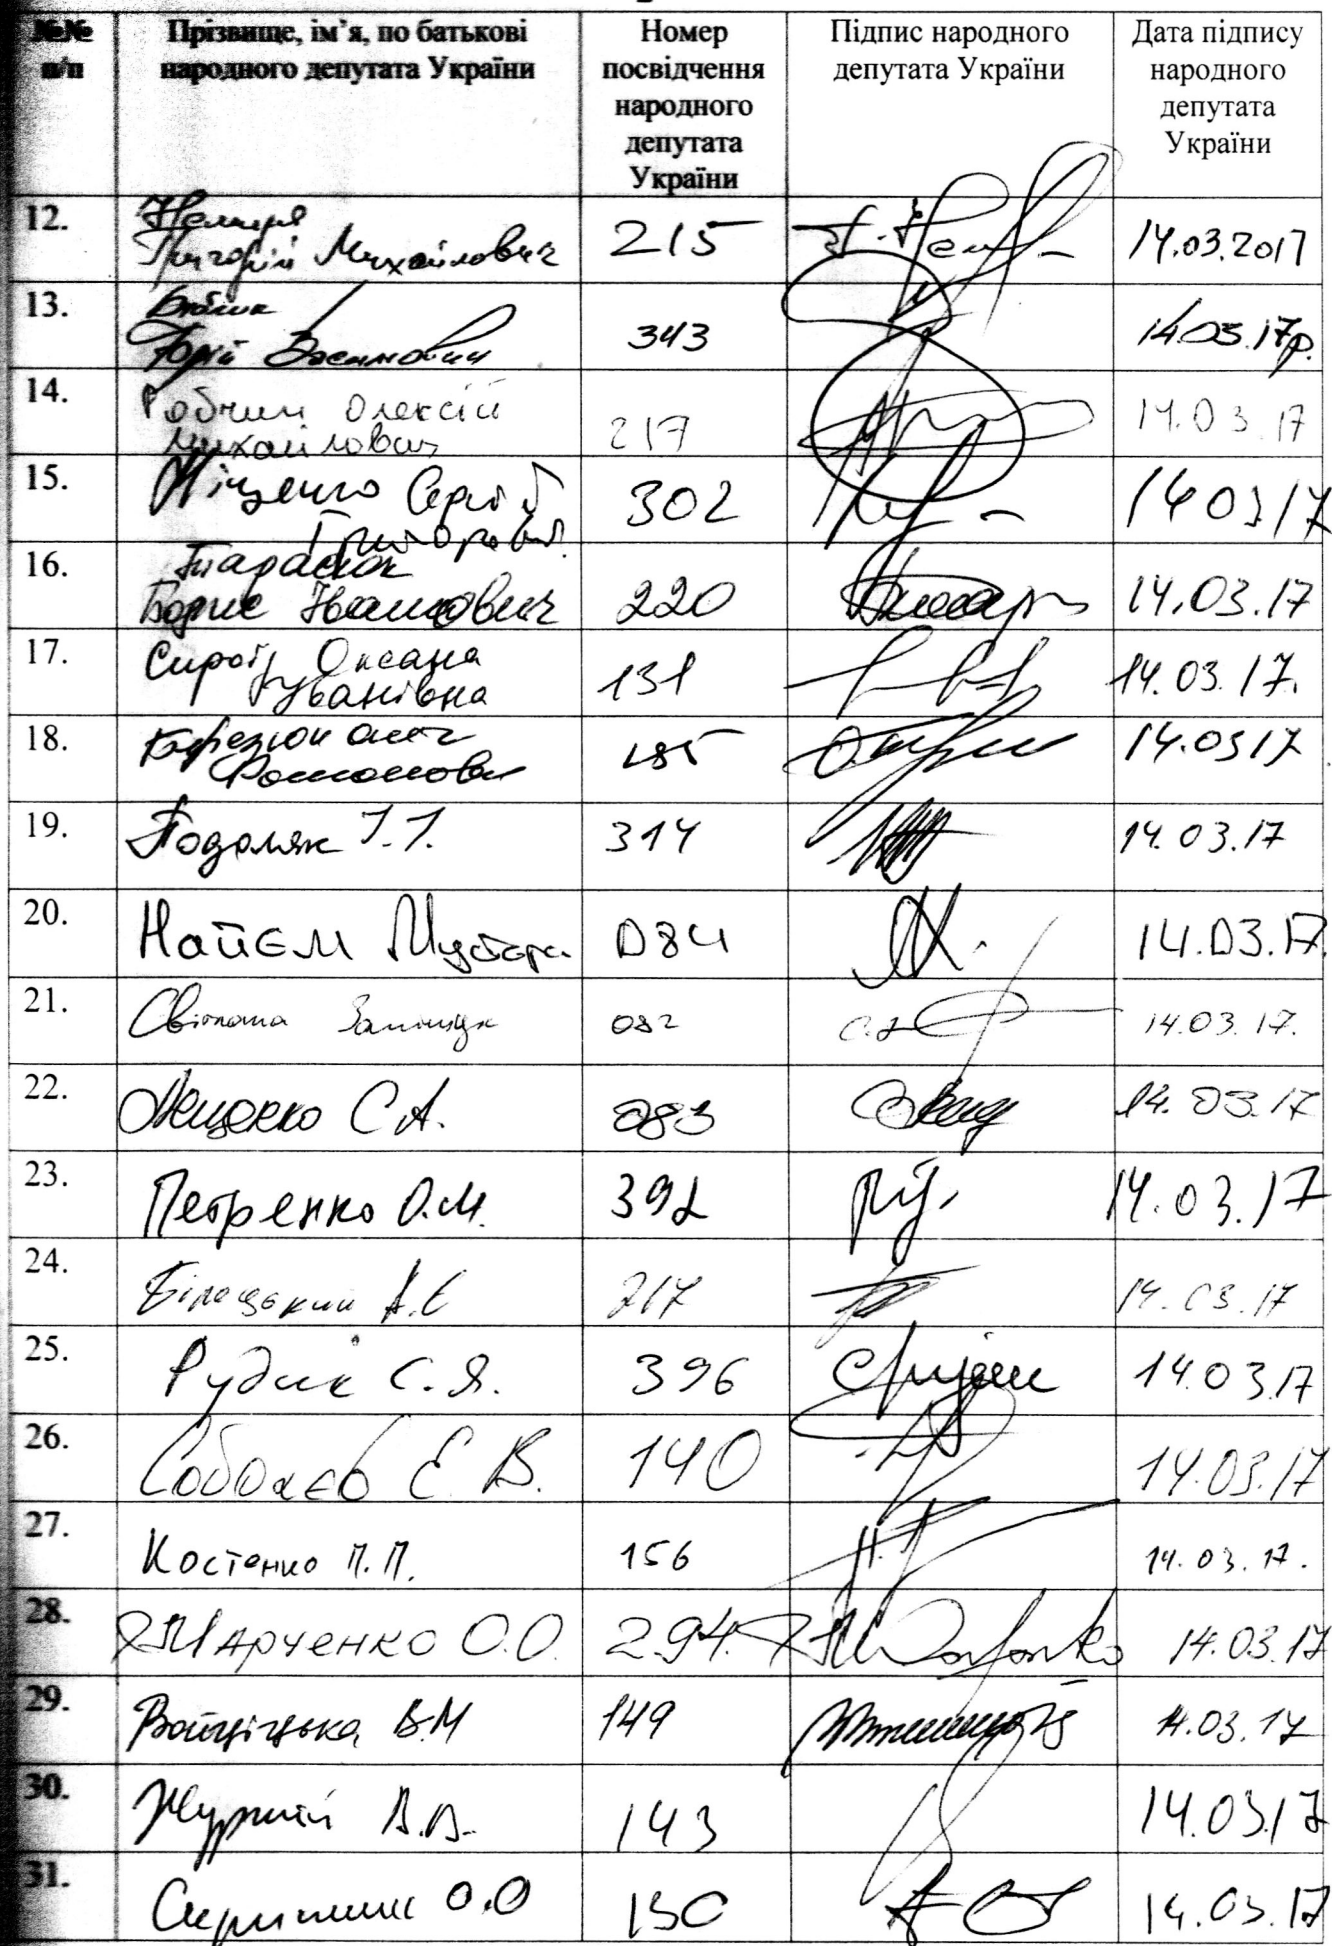 №№ п/п
Прізвище, ім’я, по батькові народного депутата України
Номер посвідчення народного депутата України
Підпис народного депутата України
Дата підпису народного депутата України
12. Немиря
Григорій Михайлович 215 14.03.2017
13. Бублик
Юрій Васильович 343 14.03.17р.
14. Рябчин Олексій
Михайлович 217 14.03.17
15. Міщенко Сергій
Григорович 302 14 03 17
16. Тарасюк
Борис Іванович 220 14.03.17
17. Сироїд Оксана
Іванівна 131 14.03.17.
18. Березюк Олег
Романович 185 14.03 17
19. Подоляк І.І. 314 14.03.17
20. Найєм Мустафа 084 14.03.17.
21. Світлана Заліщук 082 14.03.17.
22. Лещенко С.А. 083 14.03.17
23. Петренко О.М. 392 14.03.17
24. Білецький А.Є 217 14.03.17
25. Рудик С.Я. 396 14.03.17
26. Соболєв Є. В. 140 14.03.17
27. Костенко П.П. 156 14.03.17.
28. Марченко О.О. 294. 14.03.17
29. Войціцька В.М 149 14.03.17
30. Журжій А.В. 143 14.03.17
31. Скрипник О.О 150 14.03.17